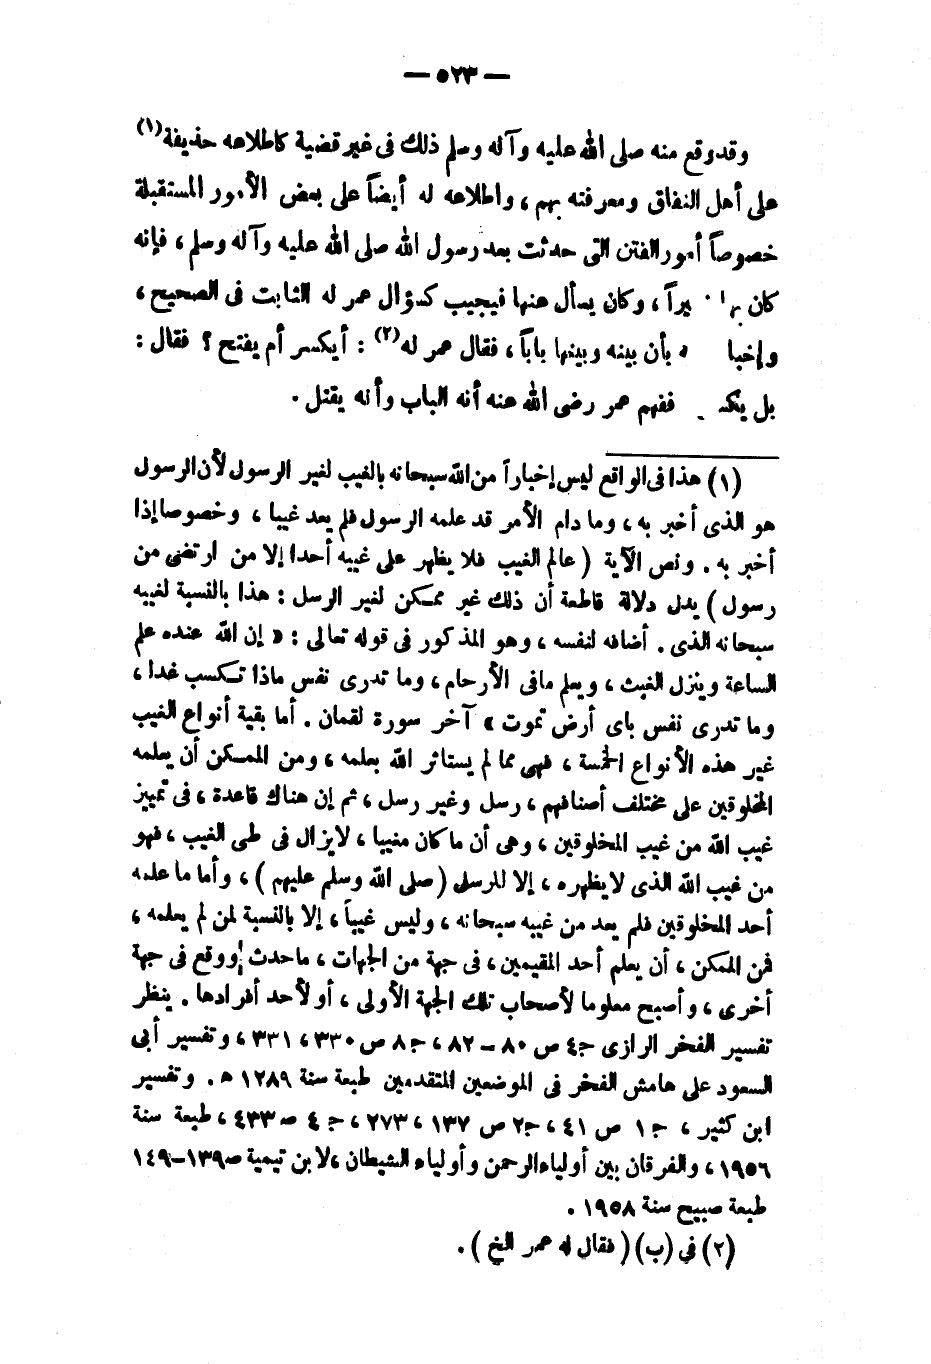 — ٥٢٣ —
وقد وقع منه صلى الله عليه وآله وسلم ذلك فى غير قضية كاطلاعه حذيفة(١)
على أهل النفاق ومعرفته بهم ، واطلاعه له أيضاً على بعض الأمور المستقبلة
خصوصاً أمور الفتن التى حدثت بعد رسول الله صلى الله عليه وآله وسلم ، فإنه
كان يراً ، وكان يسأل عنها فيجيب كسؤال عمر له الثابت فى الصحيح ،
وإخبا ه بأن بينه وبينها باباً ، فقال عمر له(٢) : أيكسر أم يفتح ؟ فقال :
بل يكـ ففهم عمر رضى الله عنه أنه الباب وأنه يقتل .
(١) هذا فى الواقع ليس إخباراً من الله سبحانه بالغيب لغير الرسول لأن الرسول
هو الذى أخبر به ، وما دام الأمر قد علمه الرسول فلم يعد غيبا ، وخصوصا إذا
أخبر به . ونص الآية ( عالم الغيب فلا يظهر على غيبه أحدا إلا من ارتضى من
رسول ) يدل دلالة قاطعة أن ذلك غير ممكن لغير الرسل : هذا بالنسبة لغيبه
سبحانه الذى . أضافه لنفسه ، وهو المذكور فى قوله تعالى : « إن الله عنده علم
الساعة وينزل الغيث ، ويعلم مافى الأرحام ، وما تدرى نفس ماذا تكسب غدا ،
وما تدرى نفس باى أرض تموت » آخر سورة لقمان . أما بقية أنواع الغيب
غير هذه الأنواع الخمسة ، فهى مما لم يستاثر الله بعلمه ، ومن الممكن أن يعلمه
المخلوقين على مختلف أصنافهم ، رسل وغير رسل ، ثم إن هناك قاعدة ، فى تمييز
غيب الله من غيب المخلوقين ، وهى أن ما كان مغيبا ، لايزال فى طى الغيب ، فهو
من غيب الله الذى لا يظهره ، إلا للرسل (صلى الله وسلم عليهم ) ، وأما ما علمه
أحد المخلوقين فلم يعد من غيبه سبحانه ، وليس غيباً ، إلا بالنسبة لمن لم يعلمه ،
فمن الممكن ، أن يعلم أحد المقيمين ، فى جهة من الجهات ، ماحدث أووقع فى جهة
أخرى ، وأصبح معلوما لأصحاب تلك الجهة الأولى ، أو لأحد أفرادها . ينظر
تفسير الفخر الرازى ج٤ ص ٨٠ – ٨٢ ، ج٨ ص ٣٣٠ ، ٣٣١ ، وتفسير أبى
السعود على هامش الفخر فى الموضعين المتقدمين طبعة سنة ١٢٨٩ ه . وتفسير
ابن كثير ، ج ١ ص ٤١ ، ج٢ ص ١٣٧ ، ٢٧٣ ، ج ٤ صـ ٤٣٣ ، طبعة سنة
١٩٥٦ ، والفرقان بين أولياء الرحمن وأولياء الشيطان ، لابن تيمية صـ ١٣٩–١٤٩
طبعة صبيح سنة ١٩٥٨ .
(٢) في (ب) ( فقال له عمر الخ ) .